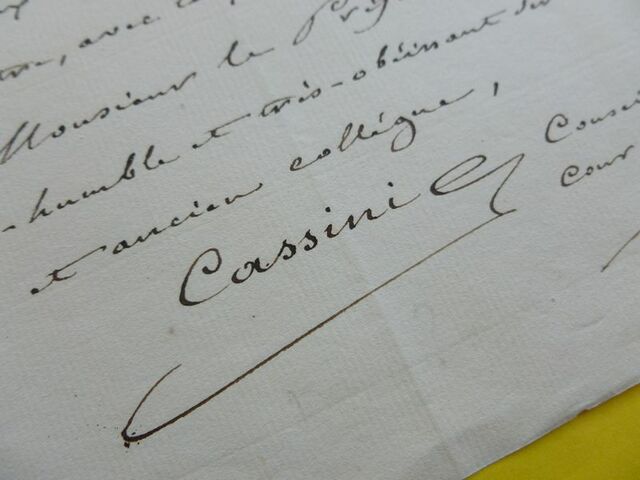 tre, avec
Monsieur le Pré
-humble et très-obéissant
et ancien collégue,
Cassini
Conse
Cour